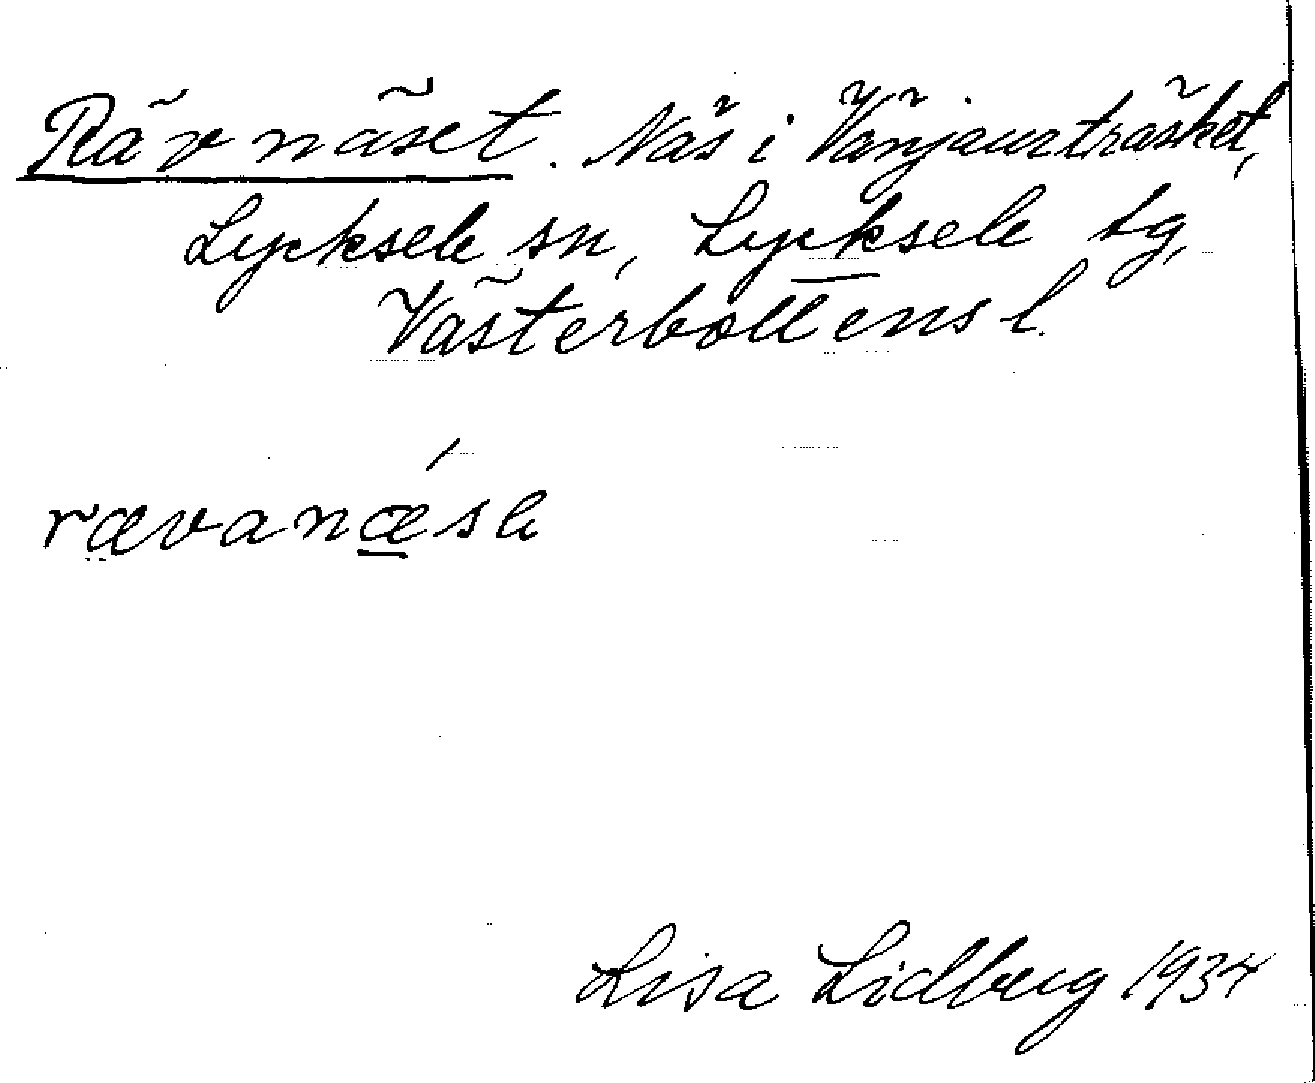 Rävnäset. Näs i Vänjaurträsket,
Lycksele sn, Lycksele tg,
Västerbottens l.
rævanǽse
Lisa Lidberg 1934